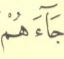 جَآءَهُمْ